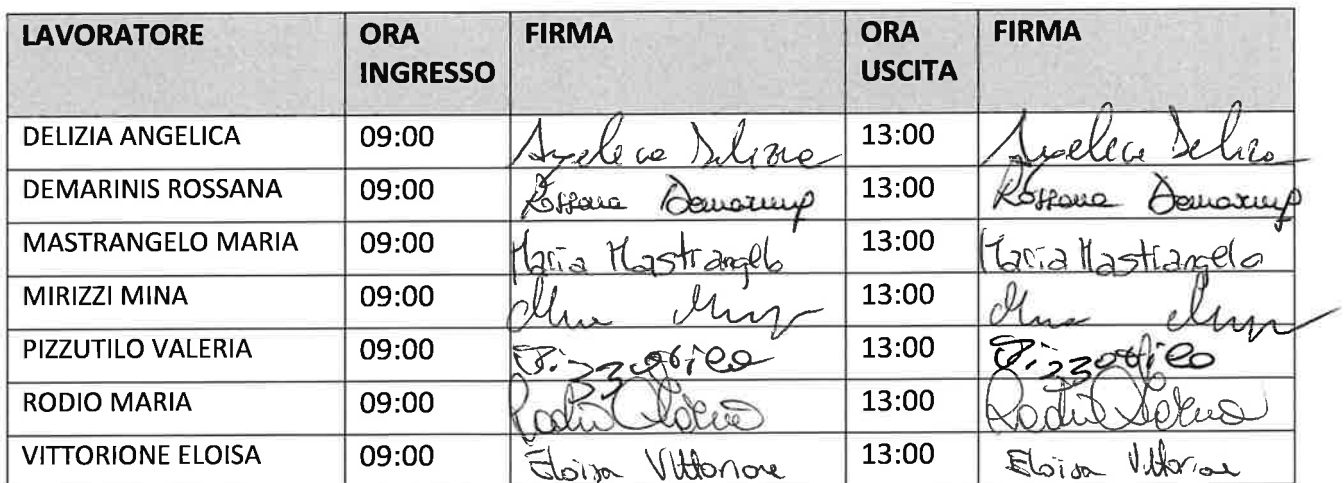 LAVORATORE ORA INGRESSO FIRMA ORA USCITA FIRMA
DELIZIA ANGELICA 09:00 Angelica Delizia 13:00 Angelica Delizia
DEMARINIS ROSSANA 09:00 Rossana Demarinis 13:00 Rossana Demarinis
MASTRANGELO MARIA 09:00 Maria Mastrangelo 13:00 Maria Mastrangelo
MIRIZZI MINA 09:00 Mina 13:00 Mina
PIZZUTILO VALERIA 09:00 Pizzutilo 13:00 Pizzutilo
RODIO MARIA 09:00 Rodio 13:00 Rodio
VITTORIONE ELOISA 09:00 Eloisa Vittorione 13:00 Eloisa Vittorione